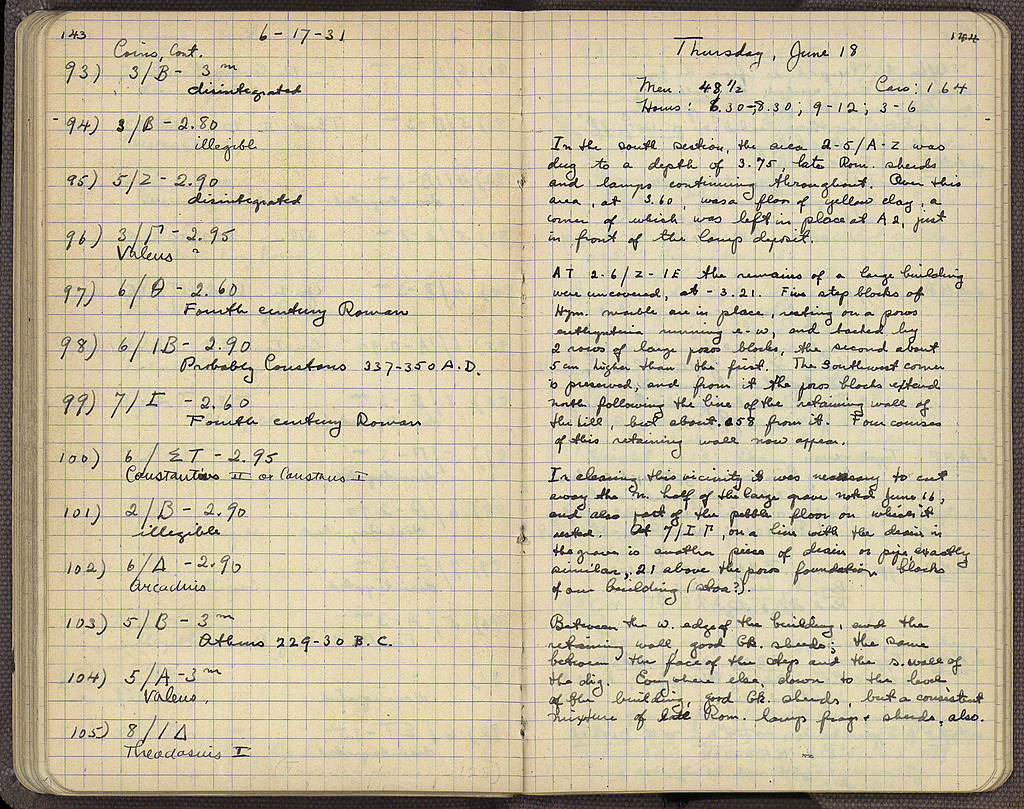 143
6-17-31
Coins, Cont.
93) 3/B - 3 m
disintegrated
94) 3/B - 2.80
illegible
95) 5/Z - 2.90
disintegrated
96) 3/Γ - 2.95
Valens ?
97) 6/Θ - 2.60
Fourth century Roman
98) 6/IB - 2.90
Probably Constans 337-350 A.D.
99) 7/I - 2.60
Fourth century Roman
100) 6/ΣT - 2.95
Constantius II or Constans I
101) 2/B - 2.90
illegible
102) 6/Δ - 2.90
Arcadius
103) 5/B - 3 m
Athens 229-30 B.C.
104) 5/A - 3 m
Valens.
105) 8/IΔ
Theodosius II
144
Thursday, June 18
Men: 48 1/2 Cars: 164
Hours: 6.30-8.30; 9-12; 3-6
In the south section, the area 2-5/A-Z was
dug to a depth of 3.75, late Rom. sherds
and lamps continuing throughout. Over this
area, at 3.60, was a floor of yellow clay, a
corner of which was left in place at A2, just
in front of the lamp deposit.
AT 2-6/Z-IE the remains of a large building
were uncovered, at -3.21. Five step blocks of
Hym. marble are in place, resting on a poros
euthynteria running e-w, and backed by
2 rows of large poros blocks, the second about
5 cm higher than the first. The Southwest corner
is preserved, and from it the poros blocks extend
north following the line of the retaining wall of
the hill, but about .58 from it. Four courses
of this retaining wall now appear.
In clearing this vicinity it was necessary to cut
away the N. half of the large grave noted June 16,
and also part of the pebble floor on which it
rested. At 7/IΓ, on a line with the drain in
the grave is another piece of drain or pipe, exactly
similar, .21 above the poros foundation blocks
of our building (stoa?).
Between the w. edge of the building, and the
retaining wall good Gk. sherds; the same
between the face of the steps and the s. wall of
the dig. Everywhere else, down to the level
of the building, good Gk. sherds, but a consistent
mixture of late Rom. lamp frags & sherds, also.